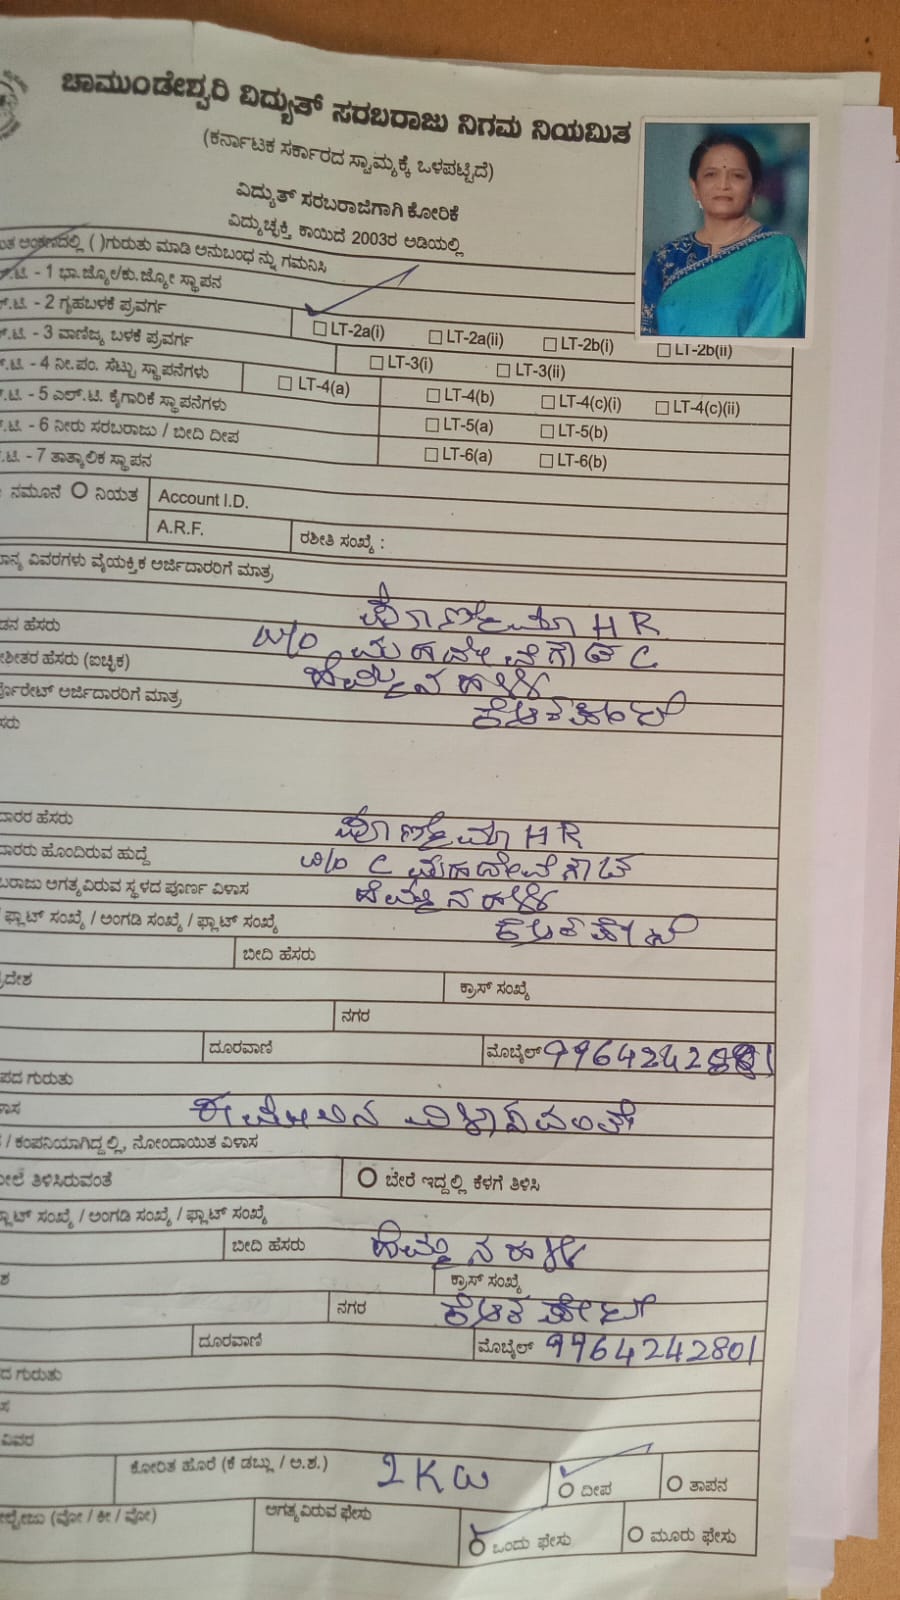 ಚಾಮುಂಡೇಶ್ವರಿ ವಿದ್ಯುತ್ ಸರಬರಾಜು ನಿಗಮ ನಿಯಮಿತ
(ಕರ್ನಾಟಕ ಸರ್ಕಾರದ ಸ್ವಾಮ್ಯಕ್ಕೆ ಒಳಪಟ್ಟಿದೆ)
ವಿದ್ಯುತ್ ಸರಬರಾಜಿಗಾಗಿ ಕೋರಿಕೆ
ವಿದ್ಯುಚ್ಛಕ್ತಿ ಕಾಯಿದೆ 2003ರ ಅಡಿಯಲ್ಲಿ
ಅಂಕಣದಲ್ಲಿ ( )ಗುರುತು ಮಾಡಿ ಅನುಬಂಧ ನ್ನು ಗಮನಿಸಿ
.ಟಿ - 1 ಭಾ.ಜ್ಯೋ/ಕು.ಜ್ಯೋ ಸ್ಥಾಪನ
.ಟಿ - 2 ಗೃಹಬಳಕೆ ಪ್ರವರ್ಗ LT-2a(i) LT-2a(ii) LT-2b(i) LT-2b(ii)
.ಟಿ - 3 ವಾಣಿಜ್ಯ ಬಳಕೆ ಪ್ರವರ್ಗ LT-3(i) LT-3(ii)
.ಟಿ - 4 ನೀ.ಪಂ. ಸೆಟ್ಟು ಸ್ಥಾಪನೆಗಳು LT-4(a) LT-4(b) LT-4(c)(i) LT-4(c)(ii)
.ಟಿ - 5 ಎಲ್.ಟಿ. ಕೈಗಾರಿಕೆ ಸ್ಥಾಪನೆಗಳು LT-5(a) LT-5(b)
.ಟಿ - 6 ನೀರು ಸರಬರಾಜು / ಬೀದಿ ದೀಪ LT-6(a) LT-6(b)
.ಟಿ - 7 ತಾತ್ಕಾಲಿಕ ಸ್ಥಾಪನ
ನಮೂನೆ ನಿಯತ Account I.D.
A.R.F. ರಶೀತಿ ಸಂಖ್ಯೆ :
ವಿವರಗಳು ವೈಯಕ್ತಿಕ ಅರ್ಜಿದಾರರಿಗೆ ಮಾತ್ರ
ಪೂರ್ಣಿಮಾ HR
ಹೆಸರು
W/O ಮಹದೇವೇಗೌಡ C
ಹೆಸರು (ಐಚ್ಛಿಕ)
ಹೆಮ್ಮನಹಳ್ಳಿ
ಅರ್ಜಿದಾರರಿಗೆ ಮಾತ್ರ
ದಾರರ ಹೆಸರು ಪೂರ್ಣಿಮಾ HR
ದಾರರು ಹೊಂದಿರುವ ಹುದ್ದೆ W/O C ಮಹದೇವೇಗೌಡ
ಅಗತ್ಯವಿರುವ ಸ್ಥಳದ ಪೂರ್ಣ ವಿಳಾಸ ಹೆಮ್ಮನಹಳ್ಳಿ
ಫ್ಲಾಟ್ ಸಂಖ್ಯೆ / ಅಂಗಡಿ ಸಂಖ್ಯೆ / ಫ್ಲಾಟ್ ಸಂಖ್ಯೆ
ಬೀದಿ ಹೆಸರು
ಕ್ರಾಸ್ ಸಂಖ್ಯೆ
ನಗರ
ದೂರವಾಣಿ ಮೊಬೈಲ್
ಗುರುತು
ವಿಳಾಸದಂತೆ
/ ಕಂಪನಿಯಾಗಿದ್ದಲ್ಲಿ, ನೋಂದಾಯಿತ ವಿಳಾಸ
ತಿಳಿಸಿರುವಂತೆ ಬೇರೆ ಇದ್ದಲ್ಲಿ ಕೆಳಗೆ ತಿಳಿಸಿ
ಸಂಖ್ಯೆ / ಅಂಗಡಿ ಸಂಖ್ಯೆ / ಫ್ಲಾಟ್ ಸಂಖ್ಯೆ
ಬೀದಿ ಹೆಸರು ಹೆಮ್ಮನಹಳ್ಳಿ
ಕ್ರಾಸ್ ಸಂಖ್ಯೆ
ನಗರ
ದೂರವಾಣಿ ಮೊಬೈಲ್ 9964242801
ಗುರುತು
ವಿವರ
ಕೋರಿತ ಹೊರೆ (ಕೆ ಡಬ್ಲು / ಅ.ಶ.) 2KW ದೀಪ ತಾಪನ
(ವೋ / ಕೀ / ವೋ) ಅಗತ್ಯವಿರುವ ಫೇಸು ಒಂದು ಫೇಸು ಮೂರು ಫೇಸು